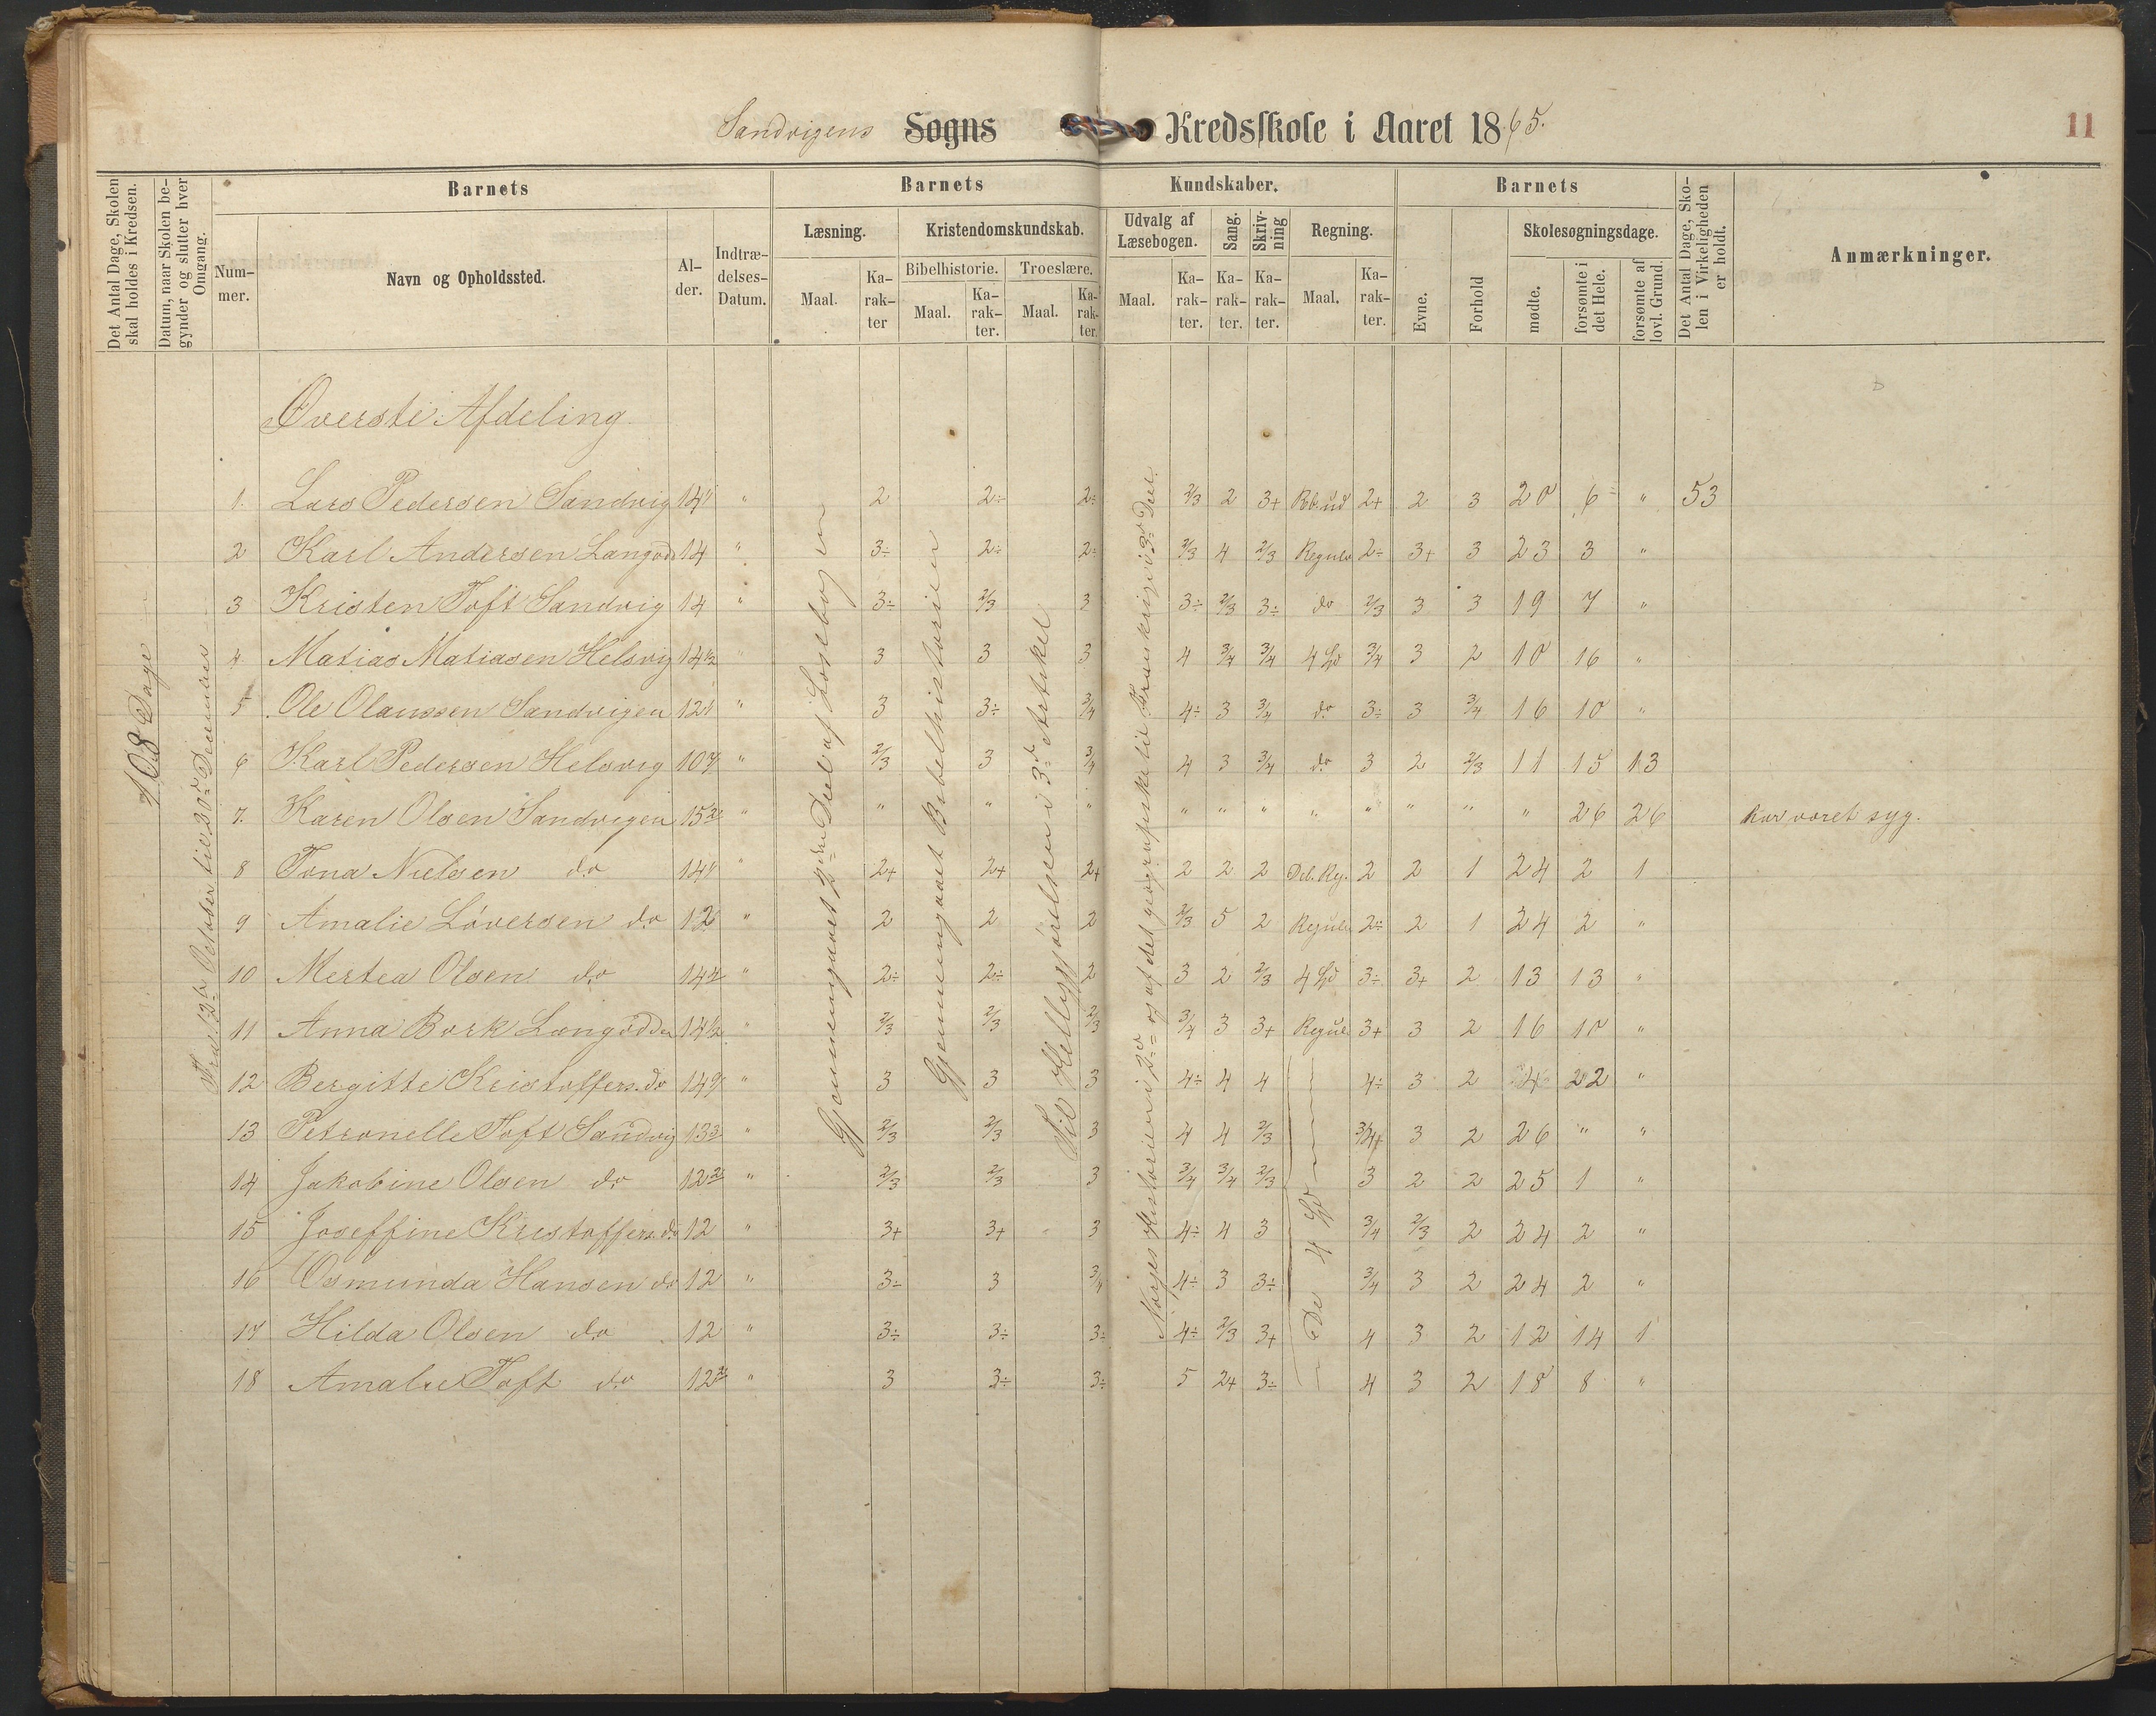 Sandvigens Sogns Kredsskole i Aaret 1865.
11
Det Antal Dage, Skolen skal holdes i Kredsen.
Datum, naar Skolen begynder og slutter hver Omgang.
Barnets
Barnets Kundskaber.
Barnets
Det Antal Dage, Skolen i Virkeligheden er holdt.
Anmærkninger.
Nummer.
Navn og Opholdssted.
Alder.
Indtrædelses-Datum.
Læsning.
Kristendomskundskab.
Udvalg af Læsebogen.
Sang.
Skrivning
Regning.
Evne.
Forhold
Skolesøgningsdage.
Bibelhistorie.
Troeslære.
Maal.
Karakter
Maal.
Karakter.
Maal.
Karakter.
Maal.
Karakter.
Karakter.
Karakter.
Maal.
Karakter.
mødte.
forsømte i det Hele.
forsømte af lovl. Grund.
108 Dage
Fra 12te October til 20de December
Gjennemgaaet 2den Deel af Læsebogen
Gjennemgaaet Bibelhistorien
Til Helliggjørelsen i 3de Artikel
Øverste Afdeling.
1. Lars Pedersen Sandvig 14 " 2 2÷ 2÷ 2/3 2 3+ 2+ 2 3 20 6 " 53
2 Karl Andersen Langodd 14 " 3÷ 2÷ 2÷ 2/3 4 2/3 Regula 2÷ 3+ 3 23 3 "
3 Kristen Toft Sandvig 14 " 3÷ 2/3 3 3÷ 2/3 3÷ do 2/3 3 3 19 7 "
4 Matias Matiasen Helsvig 14 1/2 " 3 3 3 4 3/4 3/4 4 3/4 3 2 10 16 "
5 Ole Olaussen Sandvigen 12 " 3 3÷ 3/4 4÷ 3 3/4 do 3÷ 3 3/4 16 10 "
6 Karl Pedersen Helsvig 10 " 2/3 3 3/4 4 3 3/4 do 3 2 2/3 11 15 13
7. Karen Olsen Sandvigen 15 " " " " " " " " " " " " 26 26 har været syg.
8 Tona Nielsen do 14 " 2+ 2+ 2+ 2 2 2 2 2 1 24 2 1
9 Amalie Løversen do 12 " 2 2 2 2/3 5 2 Regula 2÷ 2 1 24 2 "
10 Mertea Olsen do 14 " 2÷ 2÷ 2 3 2 2/3 4 3÷ 3+ 2 13 13 "
11 Anna Bork Langodden 14 1/2 " 2/3 2/3 2/3 3/4 3 3+ Regula 3+ 3 2 16 10 "
12 Bergitte Kristoffers. do 14 " 3 3 3 4÷ 4 4 4÷ 3 2 4 22 "
13 Petronelle Toft Sandvig 13 " 2/3 2/3 3 4 4 2/3 3/4+ 3 2 26 " "
14 Jakobine Olsen do 12 " 2/3 2/3 3 3/4 3/4 2/3 3 2 2 25 1 "
15 Joseffine Kristoffers. do 12 " 3+ 3+ 3 4÷ 4 3 3/4 2/3 2 24 2 "
16 Osmunda Hansen do 12 " 3÷ 3 3/4 4÷ 3 3÷ 3/4 3 2 24 2 "
17 Hilda Olsen do 12 " 3÷ 3÷ 3÷ 4÷ 2/3 3+ 4 3 2 12 14 1
18 Amalie Toft do 12 " 3 3÷ 3÷ 5 2+ 3÷ 4 3 2 18 8 "
Norges Historien i 2de og af det geografiske til Frankrig i 3de Deel.
De 4